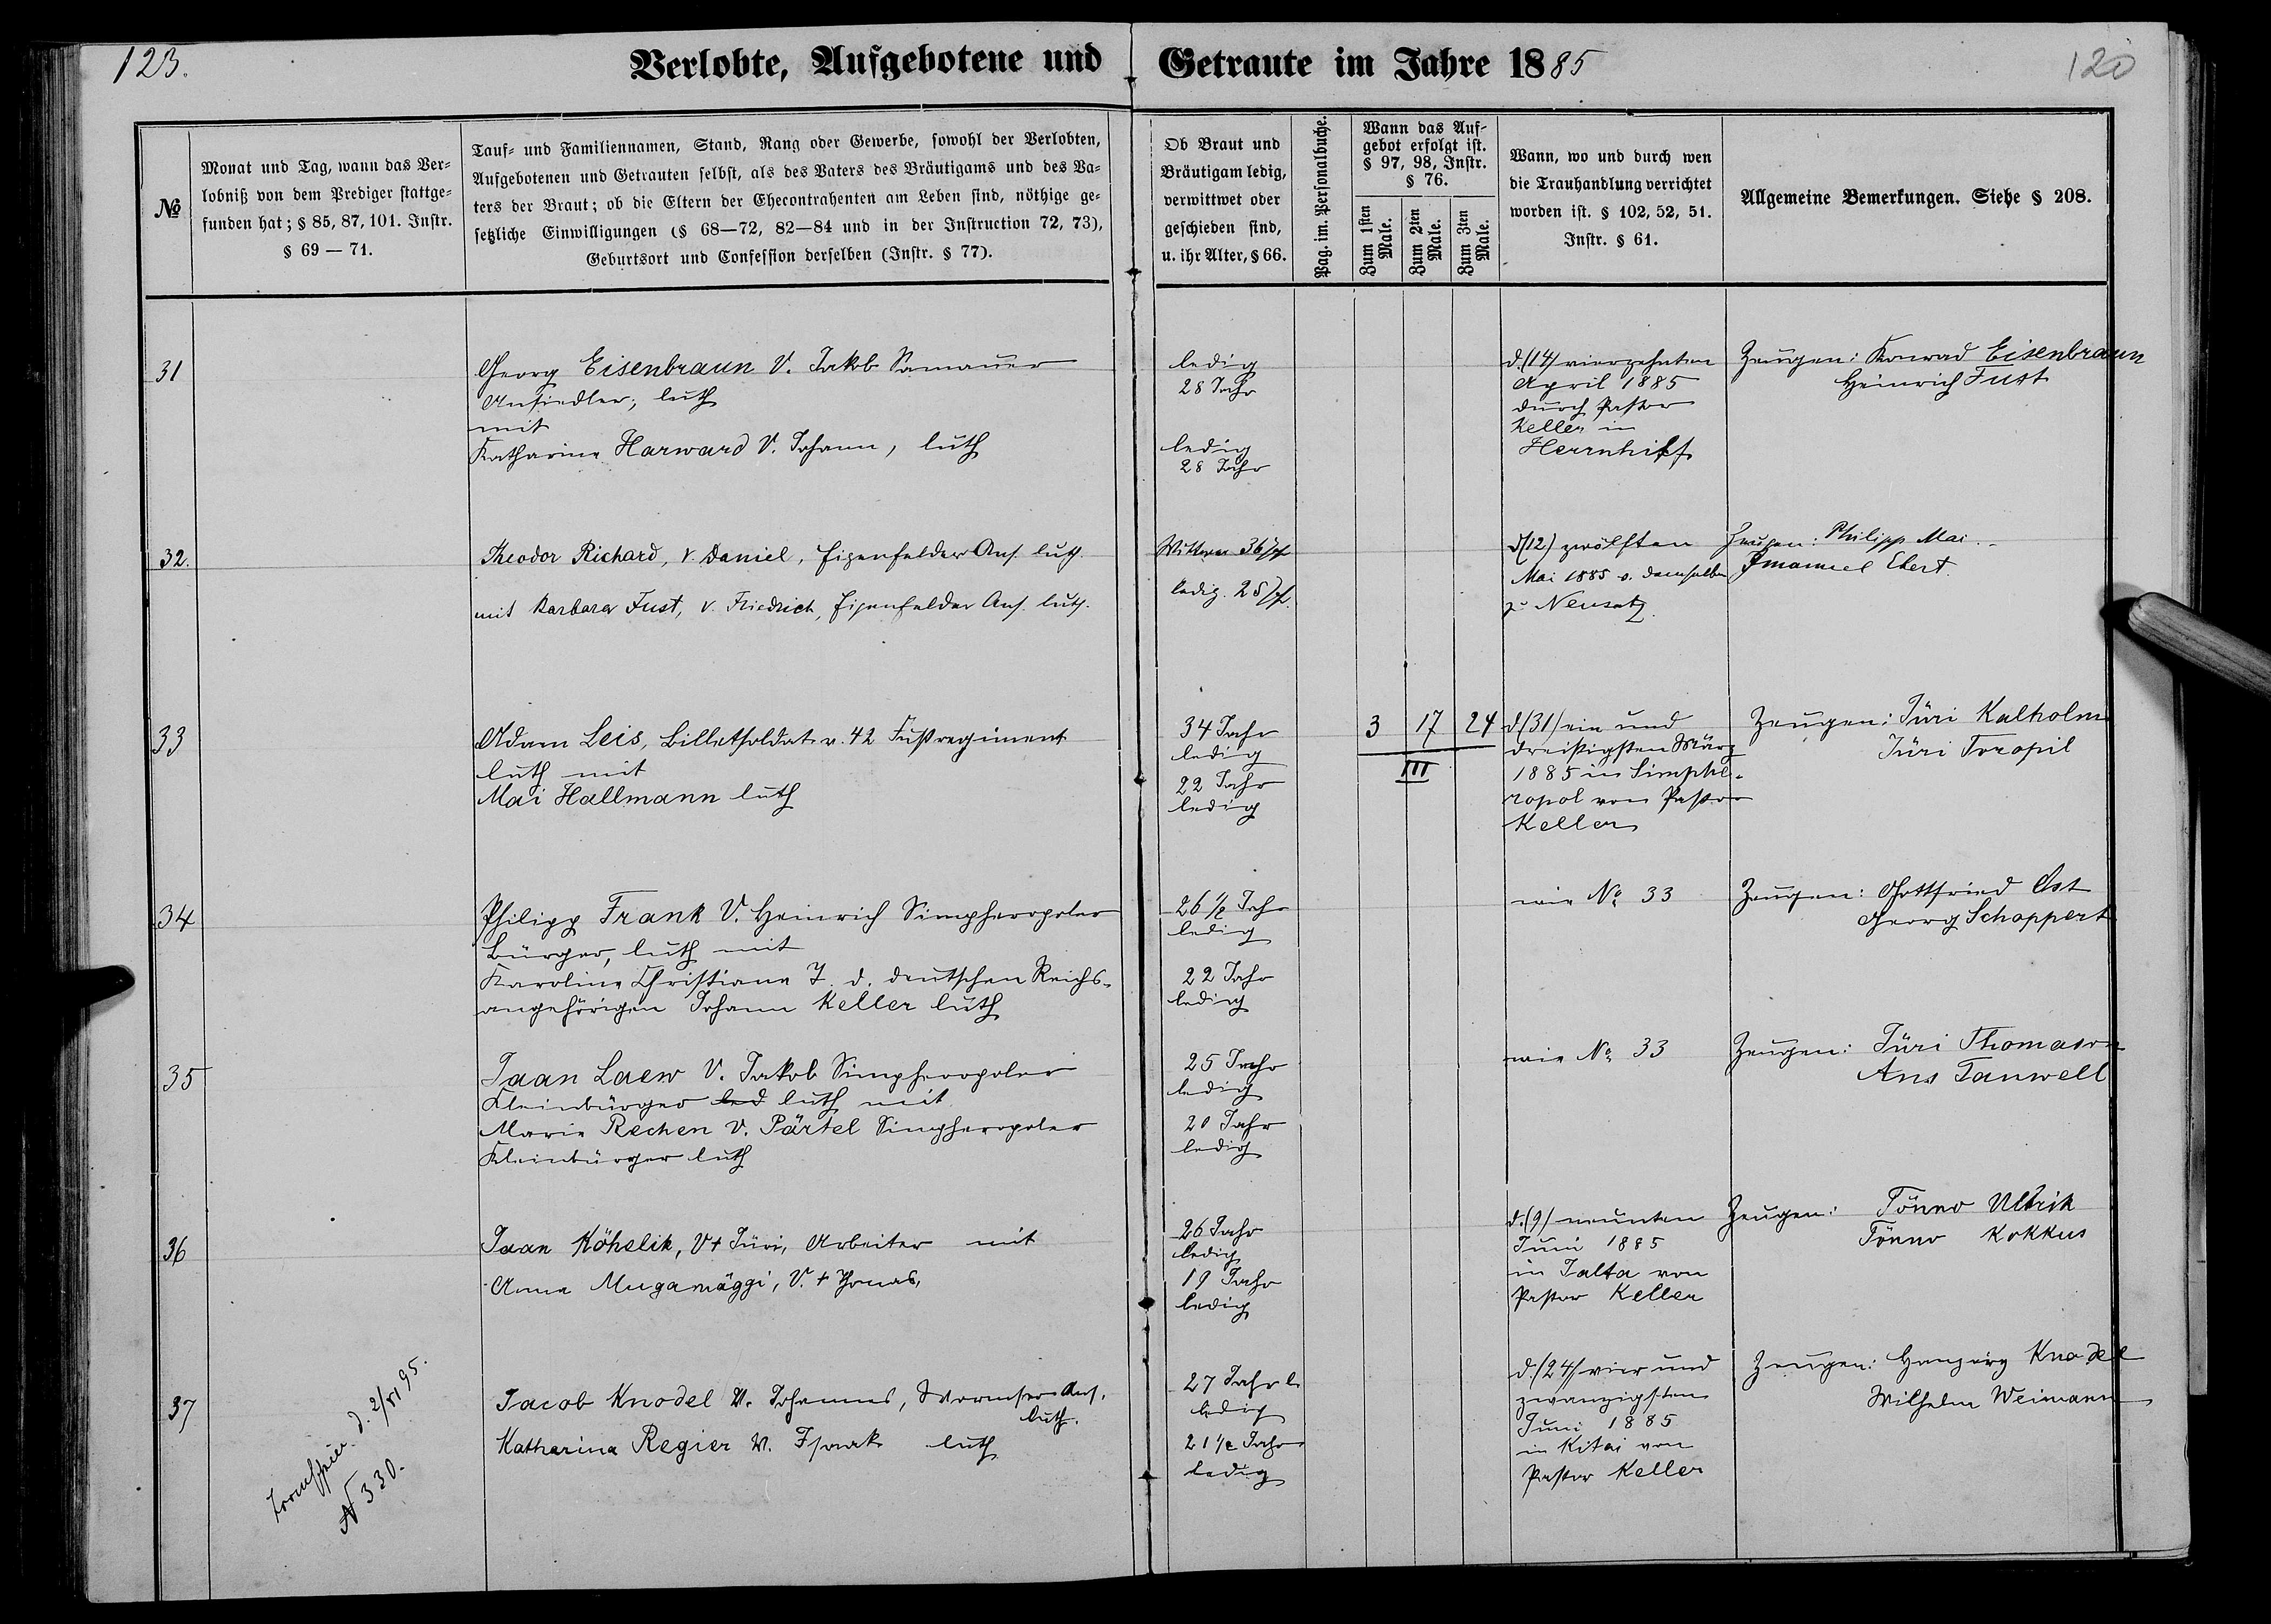 123.
Verlobte, Aufgebotene und Getraute im Jahre 1885
120
№
Monat und Tag, wann das Ver-
lobniß von dem Prediger stattge-
funden hat; § 85, 87, 101. Instr.
§ 69 — 71.
Tauf- und Familiennamen, Stand, Rang oder Gewerbe, sowohl der Verlobten,
Aufgebotenen und Getrauten selbst, als des Vaters des Bräutigams und des Va-
ters der Braut; ob die Eltern der Ehecontrahenten am Leben sind, nöthige ge-
setzliche Einwilligungen (§ 68—72, 82—84 und in der Instruction 72, 73),
Geburtsort und Confession derselben (Instr. § 77).
Ob Braut und
Bräutigam ledig,
verwittwet oder
geschieden sind,
u. ihr Alter, § 66.
Pag. im. Personalbuche.
Wann das Auf-
gebot erfolgt ist.
§ 97, 98, Instr.
§ 76.
Zum 1sten
Male.
Zum 2ten
Male.
Zum 3ten
Male.
Wann, wo und durch wen
die Trauhandlung verrichtet
worden ist. § 102, 52, 51.
Instr. § 61.
Allgemeine Bemerkungen. Siehe § 208.
31
Georg Eisenbraun V. Jakob
Ansiedler, luth
mit
Katharina Harward V. Johann, luth
ledig
28 Jahr
ledig
28 Jahr
d. (14) vierzehnten
April 1885
durch Pastor
Keller in
Herrnhilf
Zeugen: Konrad Eisenbraun
Heinrich Fust
32.
Theodor Richard, v. Daniel, Eigenfelder Ans. luth.
mit Barbara Fust, v. Friedrich, Eigenfelder Ans. luth.
Wittwer 36 J.
ledig. 28 J.
d (12) zwölften
Mai 1885 v. demselben
zu Neusatz.
Zeugen: Philipp Mai.
Emanuel Ebert.
33
Adam Leis, Billetsoldat v. 42 Fußregiment
luth mit
Mai Hallmann luth
34 Jahr
ledig
22 Jahr
ledig
3 17 24
III
d (31) ein und
dreißigsten März
1885 in Simphe-
ropol von Pastor
Keller
Zeugen: Jüri Kalholm
Jüri Toropil
34
Philipp Frank V. Heinrich Simpheropoler
Bürger, luth mit
Karoline Christiana T. d. deutschen Reichs-
angehörigen Johann Keller luth
26 1/2 Jahr
ledig
22 Jahr
ledig
wie № 33
Zeugen: Gottfried Ost
Georg Schoppert
35
Jaan Laew V. Jakob Simpheropoler
Kleinbürger led luth mit
Marie Rechen V. Pärtel Simpheropoler
Kleinbürger luth
25 Jahr
ledig
20 Jahr
ledig
wie № 33
Zeugen: Jüri Thomason
Ans Tanwell
36
Jaan Köhelik, V + Jüri, Arbeiter mit
Anna Mugamäggi, V. + Thomas,
26 Jahr
ledig
19 Jahr
ledig
d. (9) neunten
Juni 1885
in Jalta von
Pastor Keller
Zeugen: Tönno Ulbrik
Tönno Kokkus
37
d. 2/VI 95.
№ 330.
Jacob Knodel V. Johannes, Wormser Ans.
luth.
Katharina Regier V. Isaak luth
27 Jahr
ledig
21 1/2 Jahr
ledig
d. (24) vier und
zwanzigsten
Juni 1885
in Kitai von
Pastor Keller
Zeugen: Hansjörg Knodel
Wilhelm Weimann